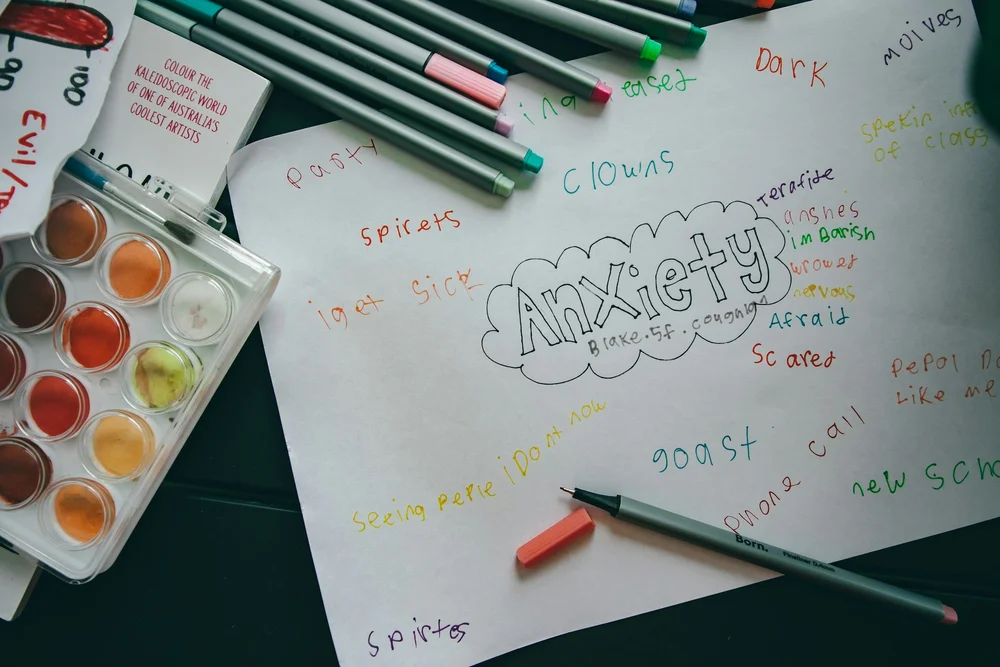 COLOUR THE
KALEIDOSCOPIC WORLD
OF ONE OF AUSTRALIA'S
COOLEST ARTISTS
Evil/
ing eases
Dark
moives
Party
Clowns
spekin
of class
spirets
Terafide
anshes
imBarish
i get sick
Anxiety
wrowes
nervous
Blake.Sf.
Afraid
Scared
pepol
Like me
seeing peple i Dont now
goast
phone call
new Scho
Born.
Fineliner
Spirtes